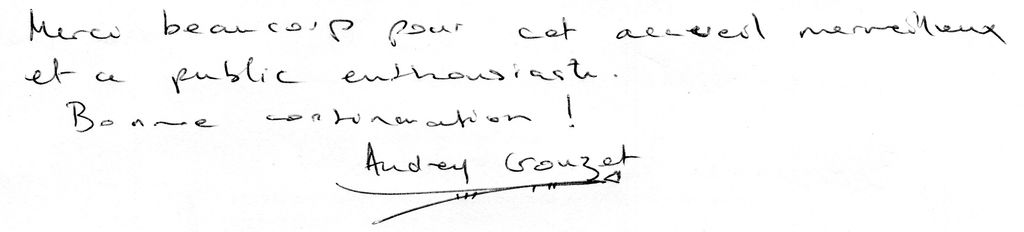 Merci beaucoup pour cet accueil merveilleux
et ce public enthousiaste.
Bonne continuation !
Audrey Gouzet